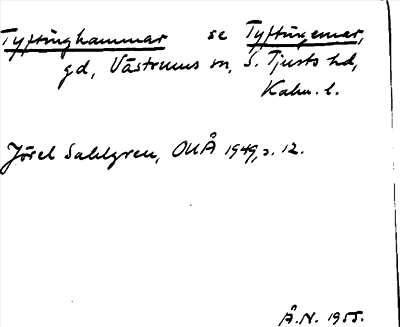 Tyftinghammar se Tyftingemer,
gd, Västrums sn, S. Tjusts hd,
Kalm. l.
Jöran Sahlgren, ONÅ 1949, s. 12.
Å.N. 1955.